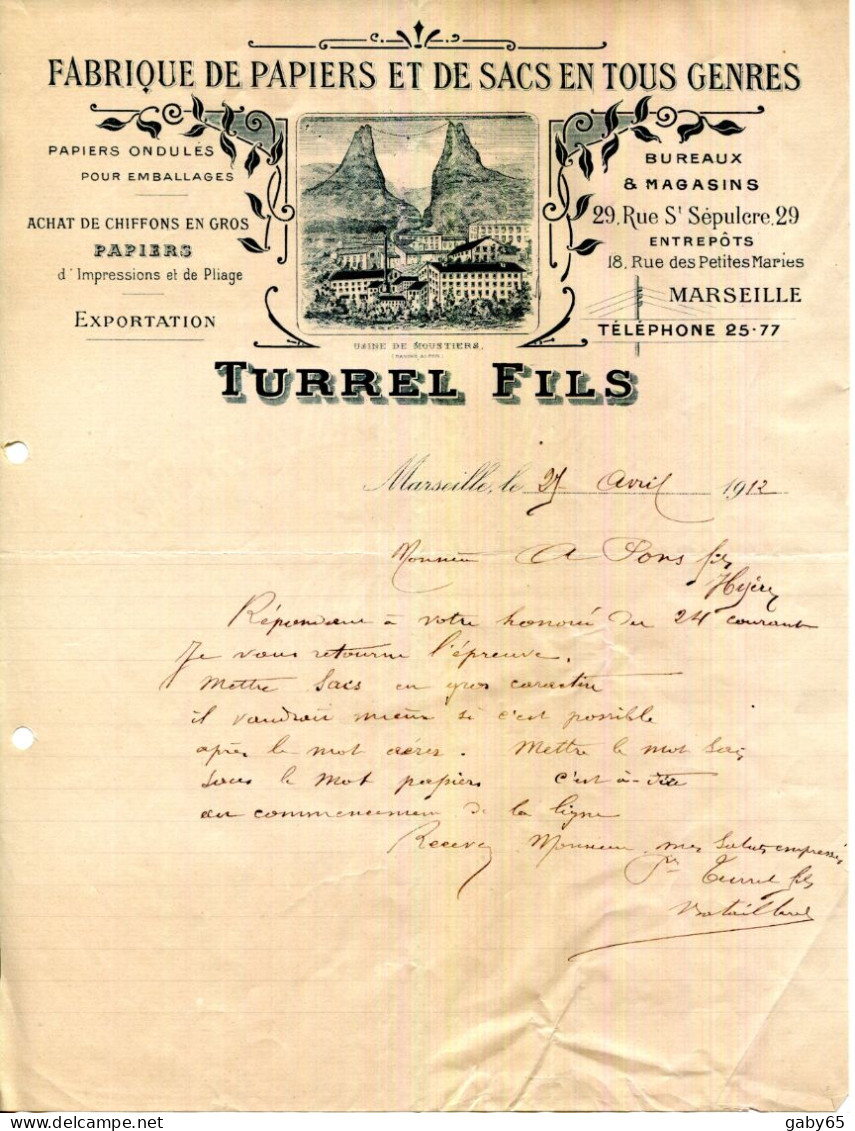 FABRIQUE DE PAPIERS ET DE SACS EN TOUS GENRES
PAPIERS ONDULÉS
POUR EMBALLAGES
ACHAT DE CHIFFONS EN GROS
PAPIERS
d'Impressions et de Pliage
EXPORTATION
USINE DE MOUSTIERS,
BUREAUX
& MAGASINS
29, Rue St Sépulcre, 29
ENTREPÔTS
18, Rue des Petites Maries
MARSEILLE
TÉLÉPHONE 25-77
TURREL FILS
Marseille, le Avril 1912
Monsieur A Pons fils
Hyères
Répondant à votre honorée du 24 courant
Je vous retourne l'épreuve.
Mettre Sacs en gros caractère
il vaudrait mieux si c'est possible
après le mot. Mettre le mot Sacs
sous le mot papiers c'est à dire
au commencement de la ligne
Recevez Monsieur mes Saluts empressés
Pr Turrel fils
Bataillard
delcampe.net
gaby65